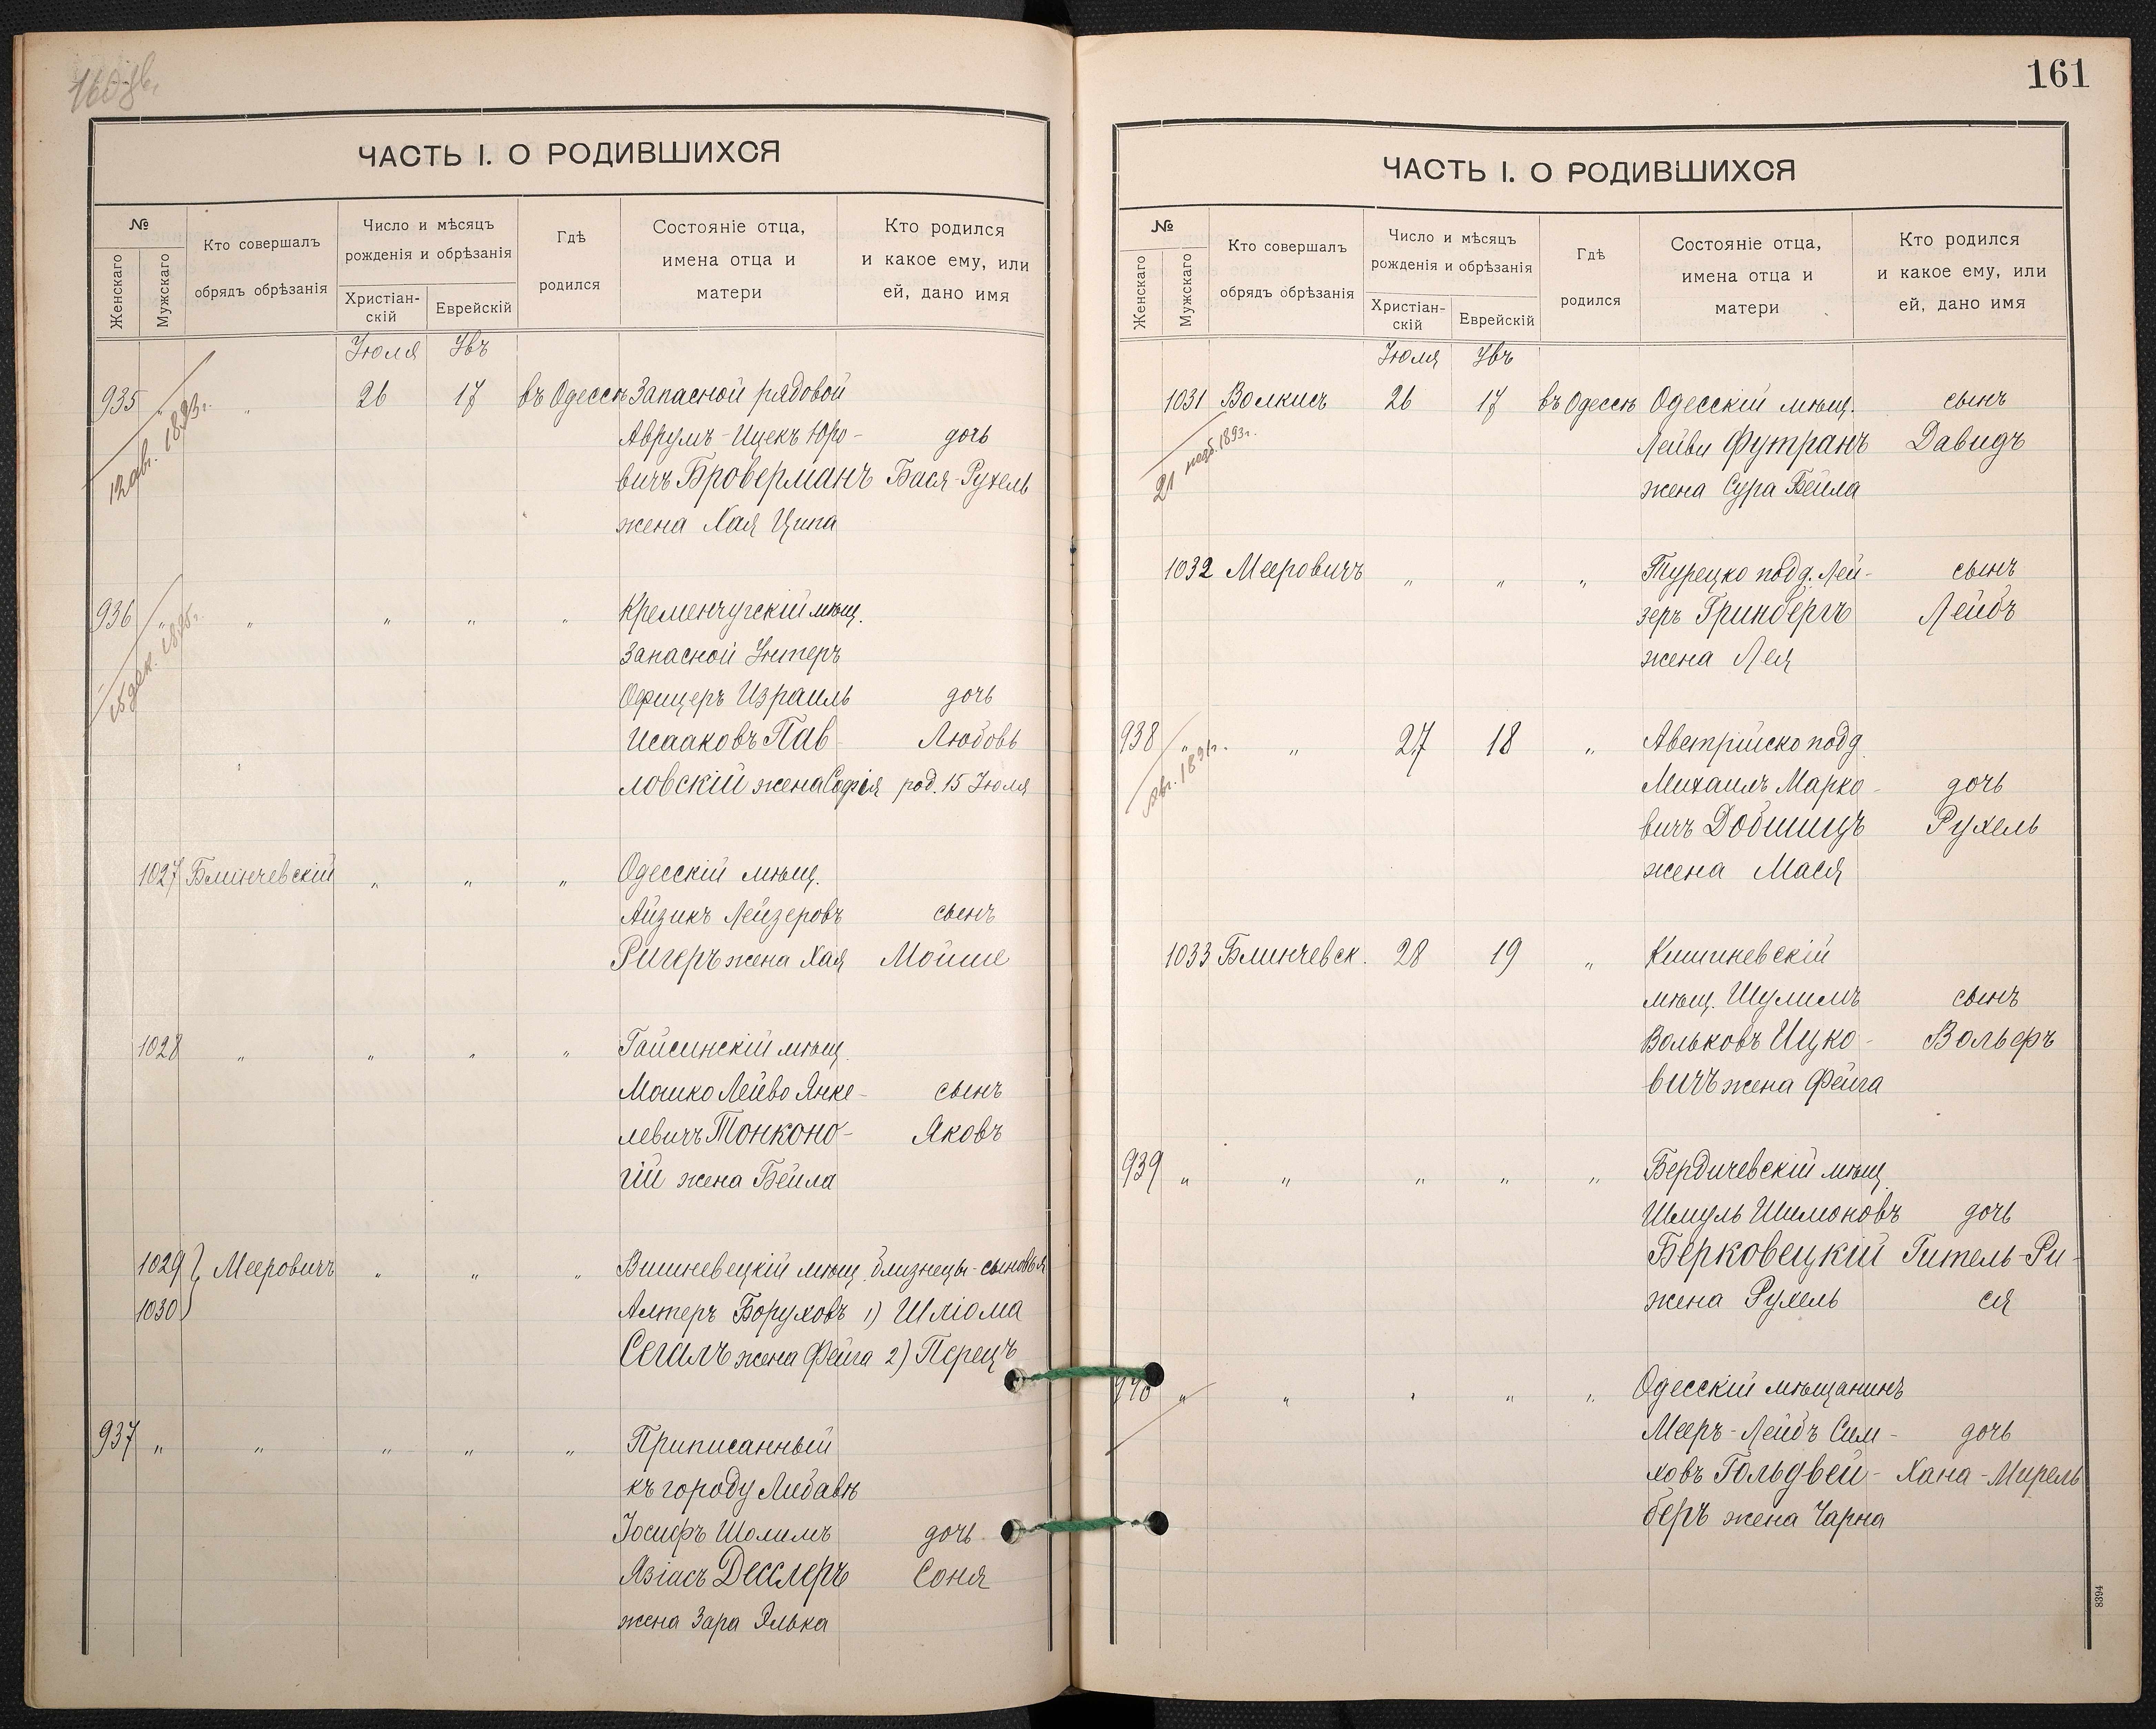 160 об.
ЧАСТЬ I. О РОДИВШИХСЯ
№
Женскаго
Мужскаго
Кто совершалъ
обрядъ обрѣзанія
Число и мѣсяцъ
рожденія и обрѣзанія
Христіан-
скій
Еврейскій
Гдѣ
родился
Состояніе отца,
имена отца и
матери
Кто родился
и какое ему, или
ей, дано имя
Іюля Увъ
935 " " 26 17 въ Одессѣ Запасной рядовой
Аврумъ-Ицекъ Юро- дочь
вичъ Броверманъ Бася-Рухель
жена Хая Ципа
12 авг. 1893 г.
936 " " " " " Кременчугскій мѣщ.
Запасной Унтеръ
Офицеръ Израиль дочь
Исааковъ Пав- Любовь
ловскій жена Софія род. 15 Іюля
1027 Блинчевскій " " " Одесскій мѣщ.
Айзикъ Лейзеровъ сынъ
Ригеръ жена Хая Мойше
1028 " " " " Гайсинскій мѣщ.
Мошко Лейво Янке- сынъ
левичъ Тонконо- Яковъ
гій жена Бейла
1029 } Мееровичъ " " " Вишневецкій мѣщ. близнецы-сыновья
1030 Алтеръ Боруховъ 1) Шліома
Сегалъ жена Фейга 2) Перецъ
937 " " " " " Приписанный
къ городу Либавѣ
Іосифъ Шолимъ дочь
Язіасъ Десслеръ Соня
жена Зара Элька
161
ЧАСТЬ I. О РОДИВШИХСЯ
№
Женскаго
Мужскаго
Кто совершалъ
обрядъ обрѣзанія
Число и мѣсяцъ
рожденія и обрѣзанія
Христіан-
скій
Еврейскій
Гдѣ
родился
Состояніе отца,
имена отца и
матери
Кто родился
и какое ему, или
ей, дано имя
Іюля Увъ
1031 Волкисъ 26 17 въ Одессѣ Одесскій мѣщ. сынъ
Лейви Футранъ Давидъ
жена Сура Бейла
21 1893 г.
1032 Мееровичъ " " " Турецко подд. Лей- сынъ
зеръ Гринбергъ Лейбъ
жена Лея
938 " " 27 18 " Австрійско подд.
Михаилъ Марко- дочь
вичъ Добшицъ Рухель
жена Мася
1033 Блинчевск. 28 19 " Кишиневскій
мѣщ. Шулимъ сынъ
Вольковъ Ицко- Вольфъ
вичъ жена Фейга
939 " " " " " Бердичевскій мѣщ.
Шмуль Шимоновъ дочь
Берковецкій Гитель-Ри-
жена Рухель ся
940 " " " " " Одесскій мѣщанинъ
Мееръ-Лейбъ Сим- дочь
ховъ Гольдвей- Хана-Мирель
беръ жена Чарна
8394